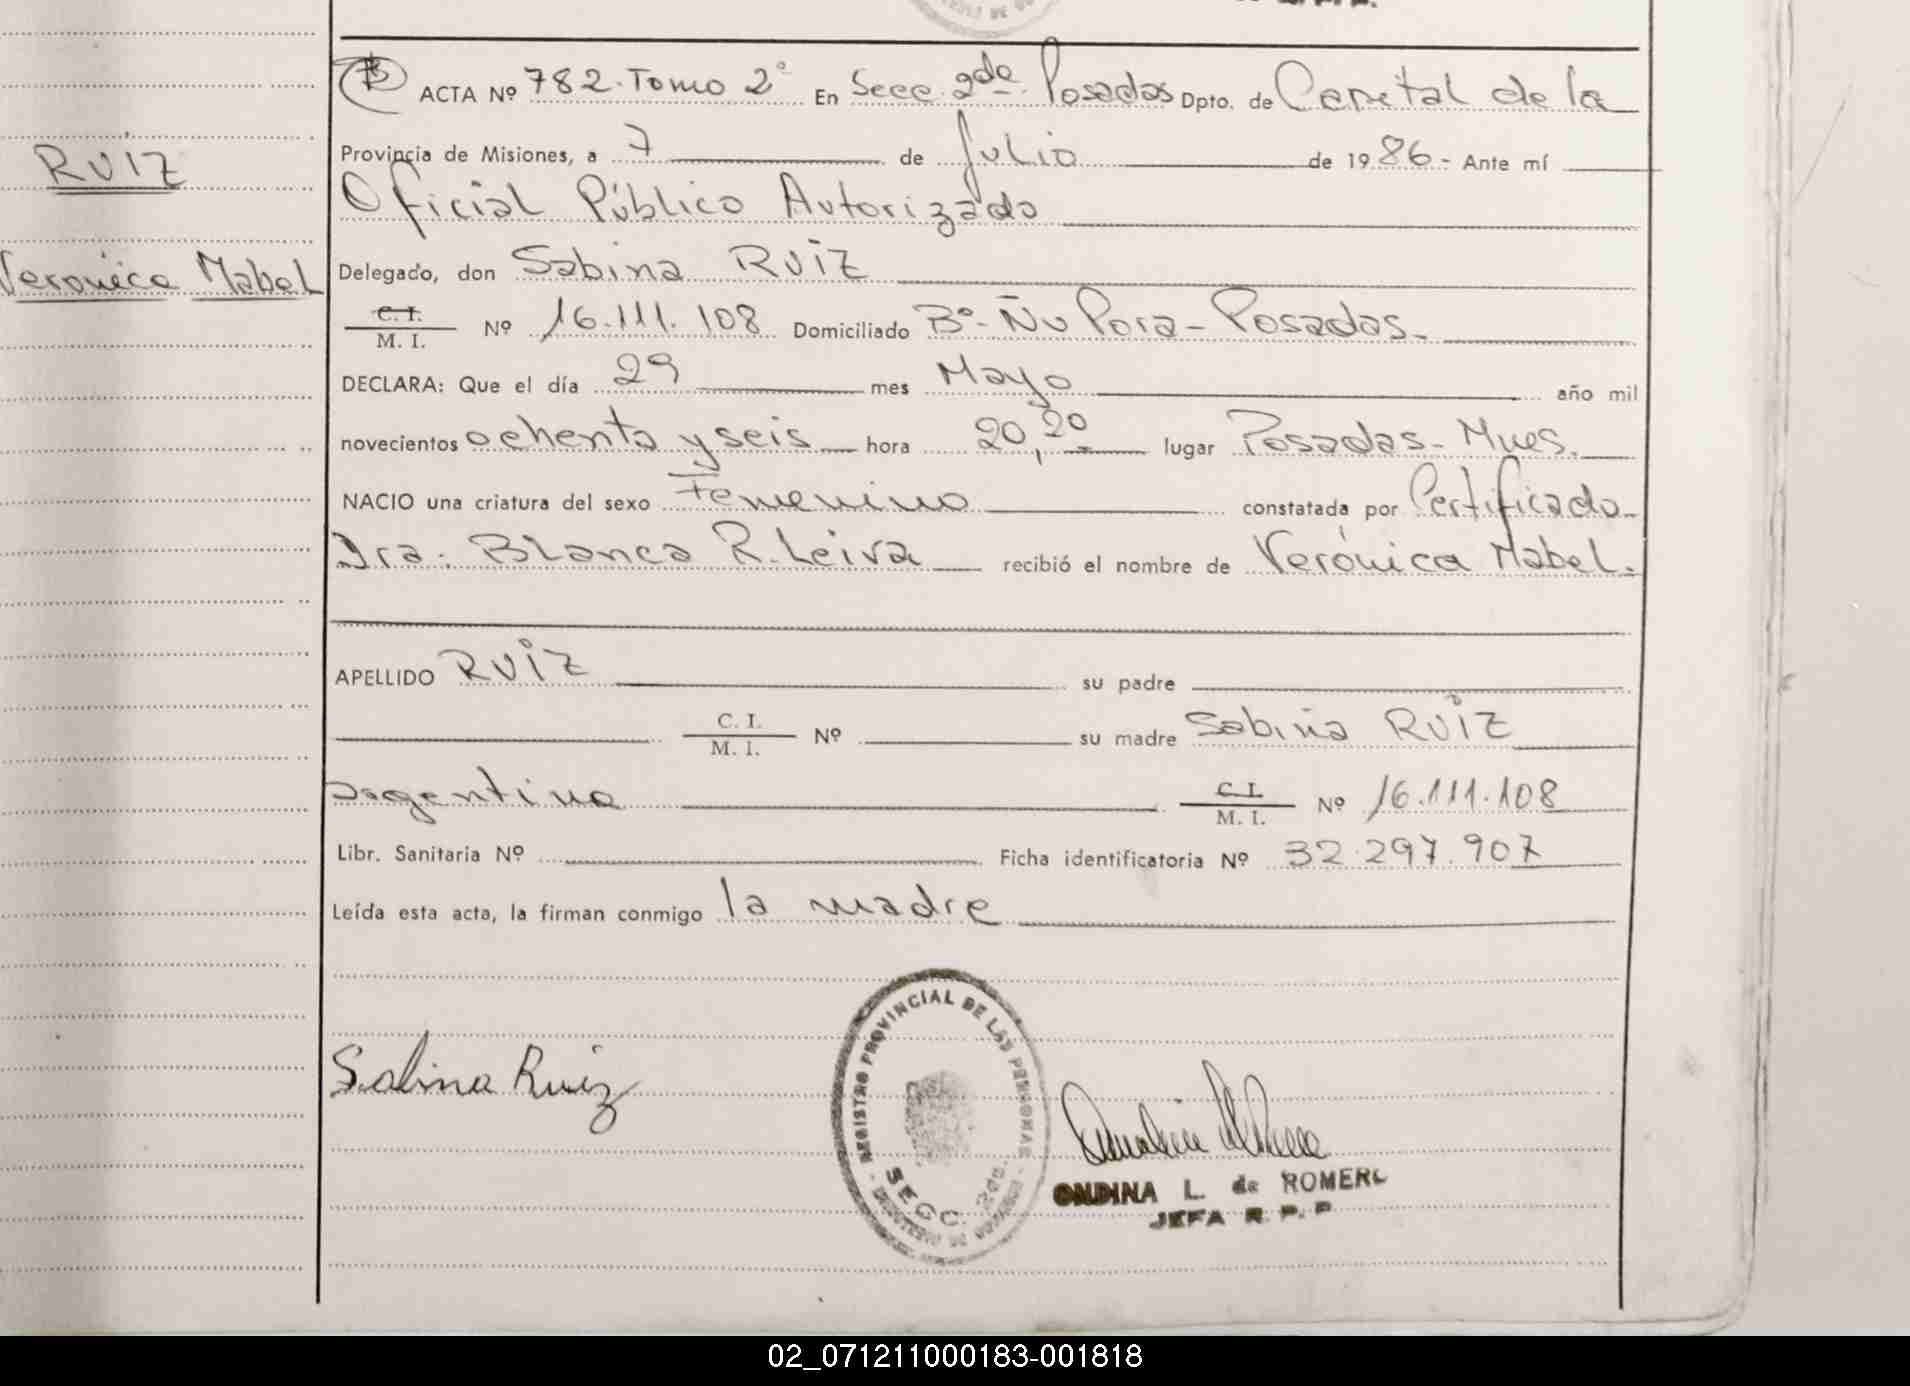 RUIZ
Verónica Mabel
ACTA Nº 782. Tomo 2º En Secc. 2da. Posadas Dpto. de Capital de la
Provincia de Misiones, a 7 de Julio de 1986.- Ante mí
Oficial Público Autorizado
Delegado, don Sabina RUIZ
C. I.
M. I. Nº 16.111.108 Domiciliado Bº- Ñu Pora- Posadas-
DECLARA: Que el día 29 mes Mayo año mil
novecientos ochenta y seis hora 20,20 lugar Posadas- Mnes.
NACIO una criatura del sexo Femenino constatada por Certificado
Dra. Blanca R. Leiva recibió el nombre de Verónica Mabel.
APELLIDO RUIZ su padre
C. I.
M. I. Nº su madre Sabina RUIZ
argentina C. I.
M. I. Nº 16.111.108
Libr. Sanitaria Nº Ficha identificatoria Nº 32.297.907
Leída esta acta, la firman conmigo la madre
Sabina Ruiz
REGISTRO PROVINCIAL DE LAS PERSONAS
SECC. 2da.
ONDINA L. de ROMERO
JEFA R. P. P
02_071211000183-001818